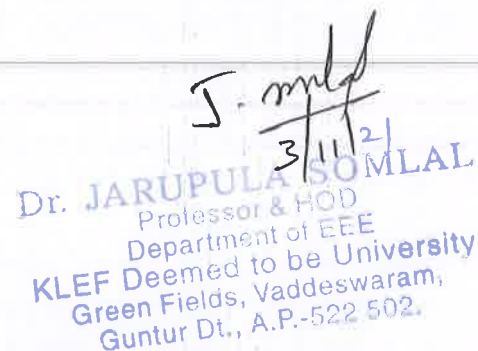 3/11/21
Dr. JARUPULA SOMLAL
Professor & HOD
Department of EEE
KLEF Deemed to be University
Green Fields, Vaddeswaram,
Guntur Dt., A.P.-522 502.